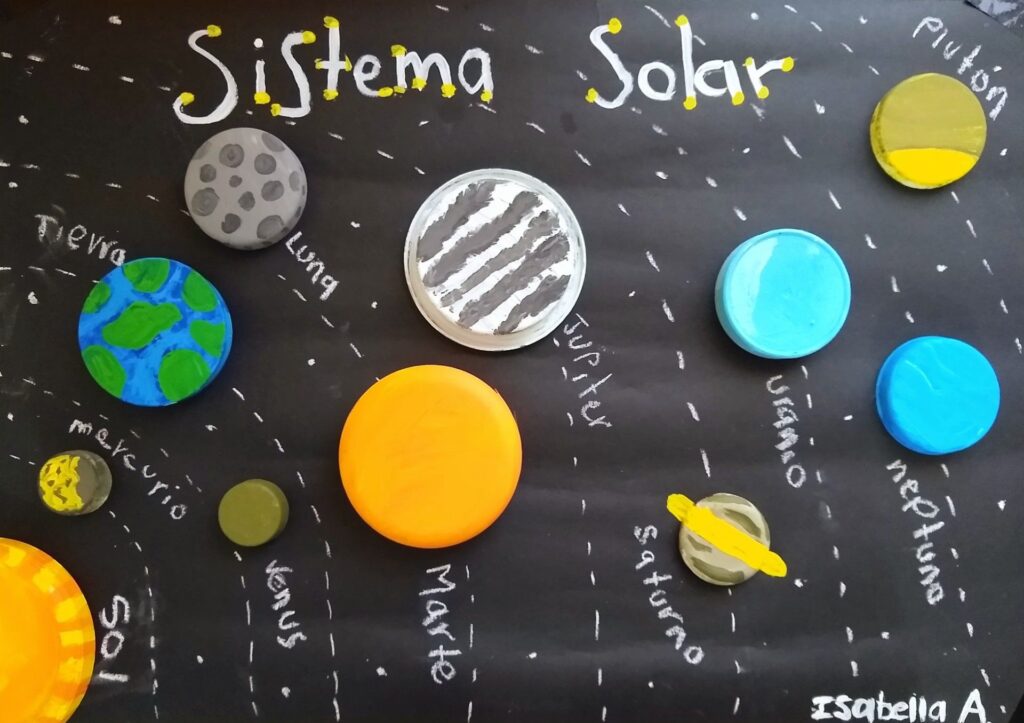 Sistema Solar
Plutón
Tierra
Luna
Jupiter
mercurio
urano
neptuno
Saturno
Venus
Marte
Sol
Isabella A